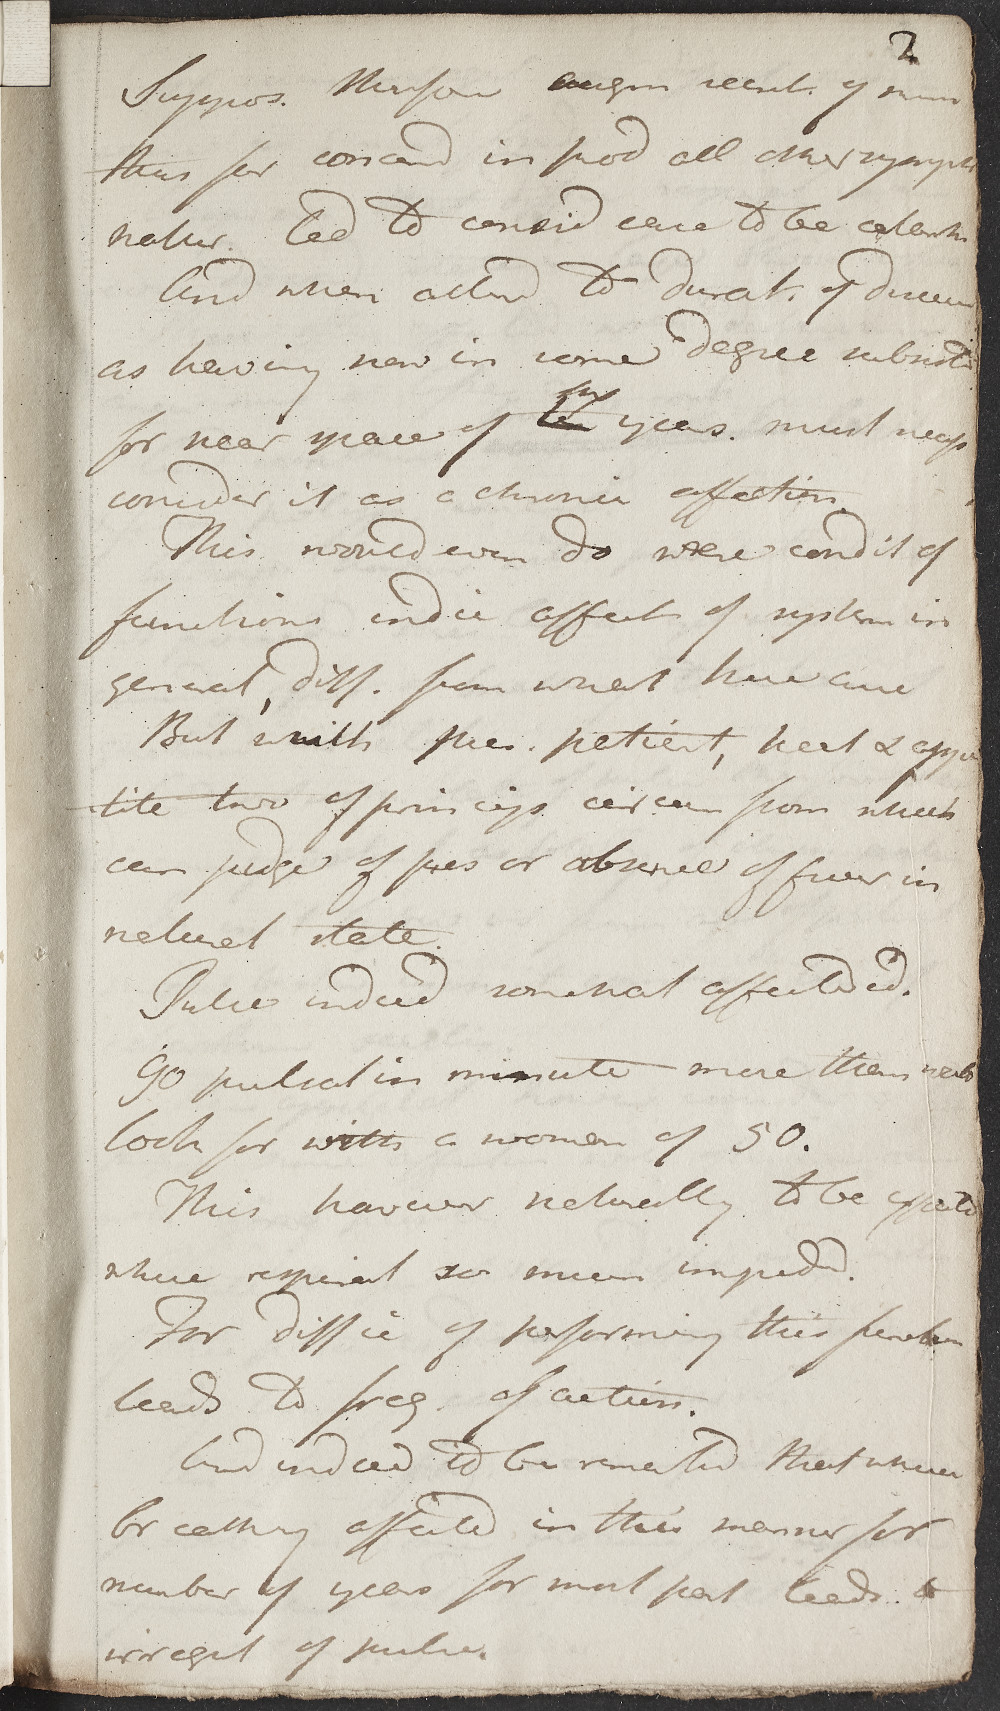 2
Suppos. therefore augm secret. of mucus
thus far concernd in prod all other symptoms
natur. led to consid case to be catarrh
And when attend to durat. of disease
as having now in some degree subsisted
for near space of years. must necess
consider it as a chronic affection.
This would even do were condit of
functions indic affect of system in
general, diff. from what here are
But with pres. patient, heat & appe
tite two of princip circum from which
can judge of pres or absence of fever in
natural state.
Pulse indeed somewhat affected.
90 pulsat in minute more than
look for with a women of 50.
This however naturally to be expected
where respirat so much imped.
For diffic of performing this function
leads to freq. of action.
And indeed to be remarked that where
breathing affected in this manner for
number of years for most part leads to
irregul of pulse.